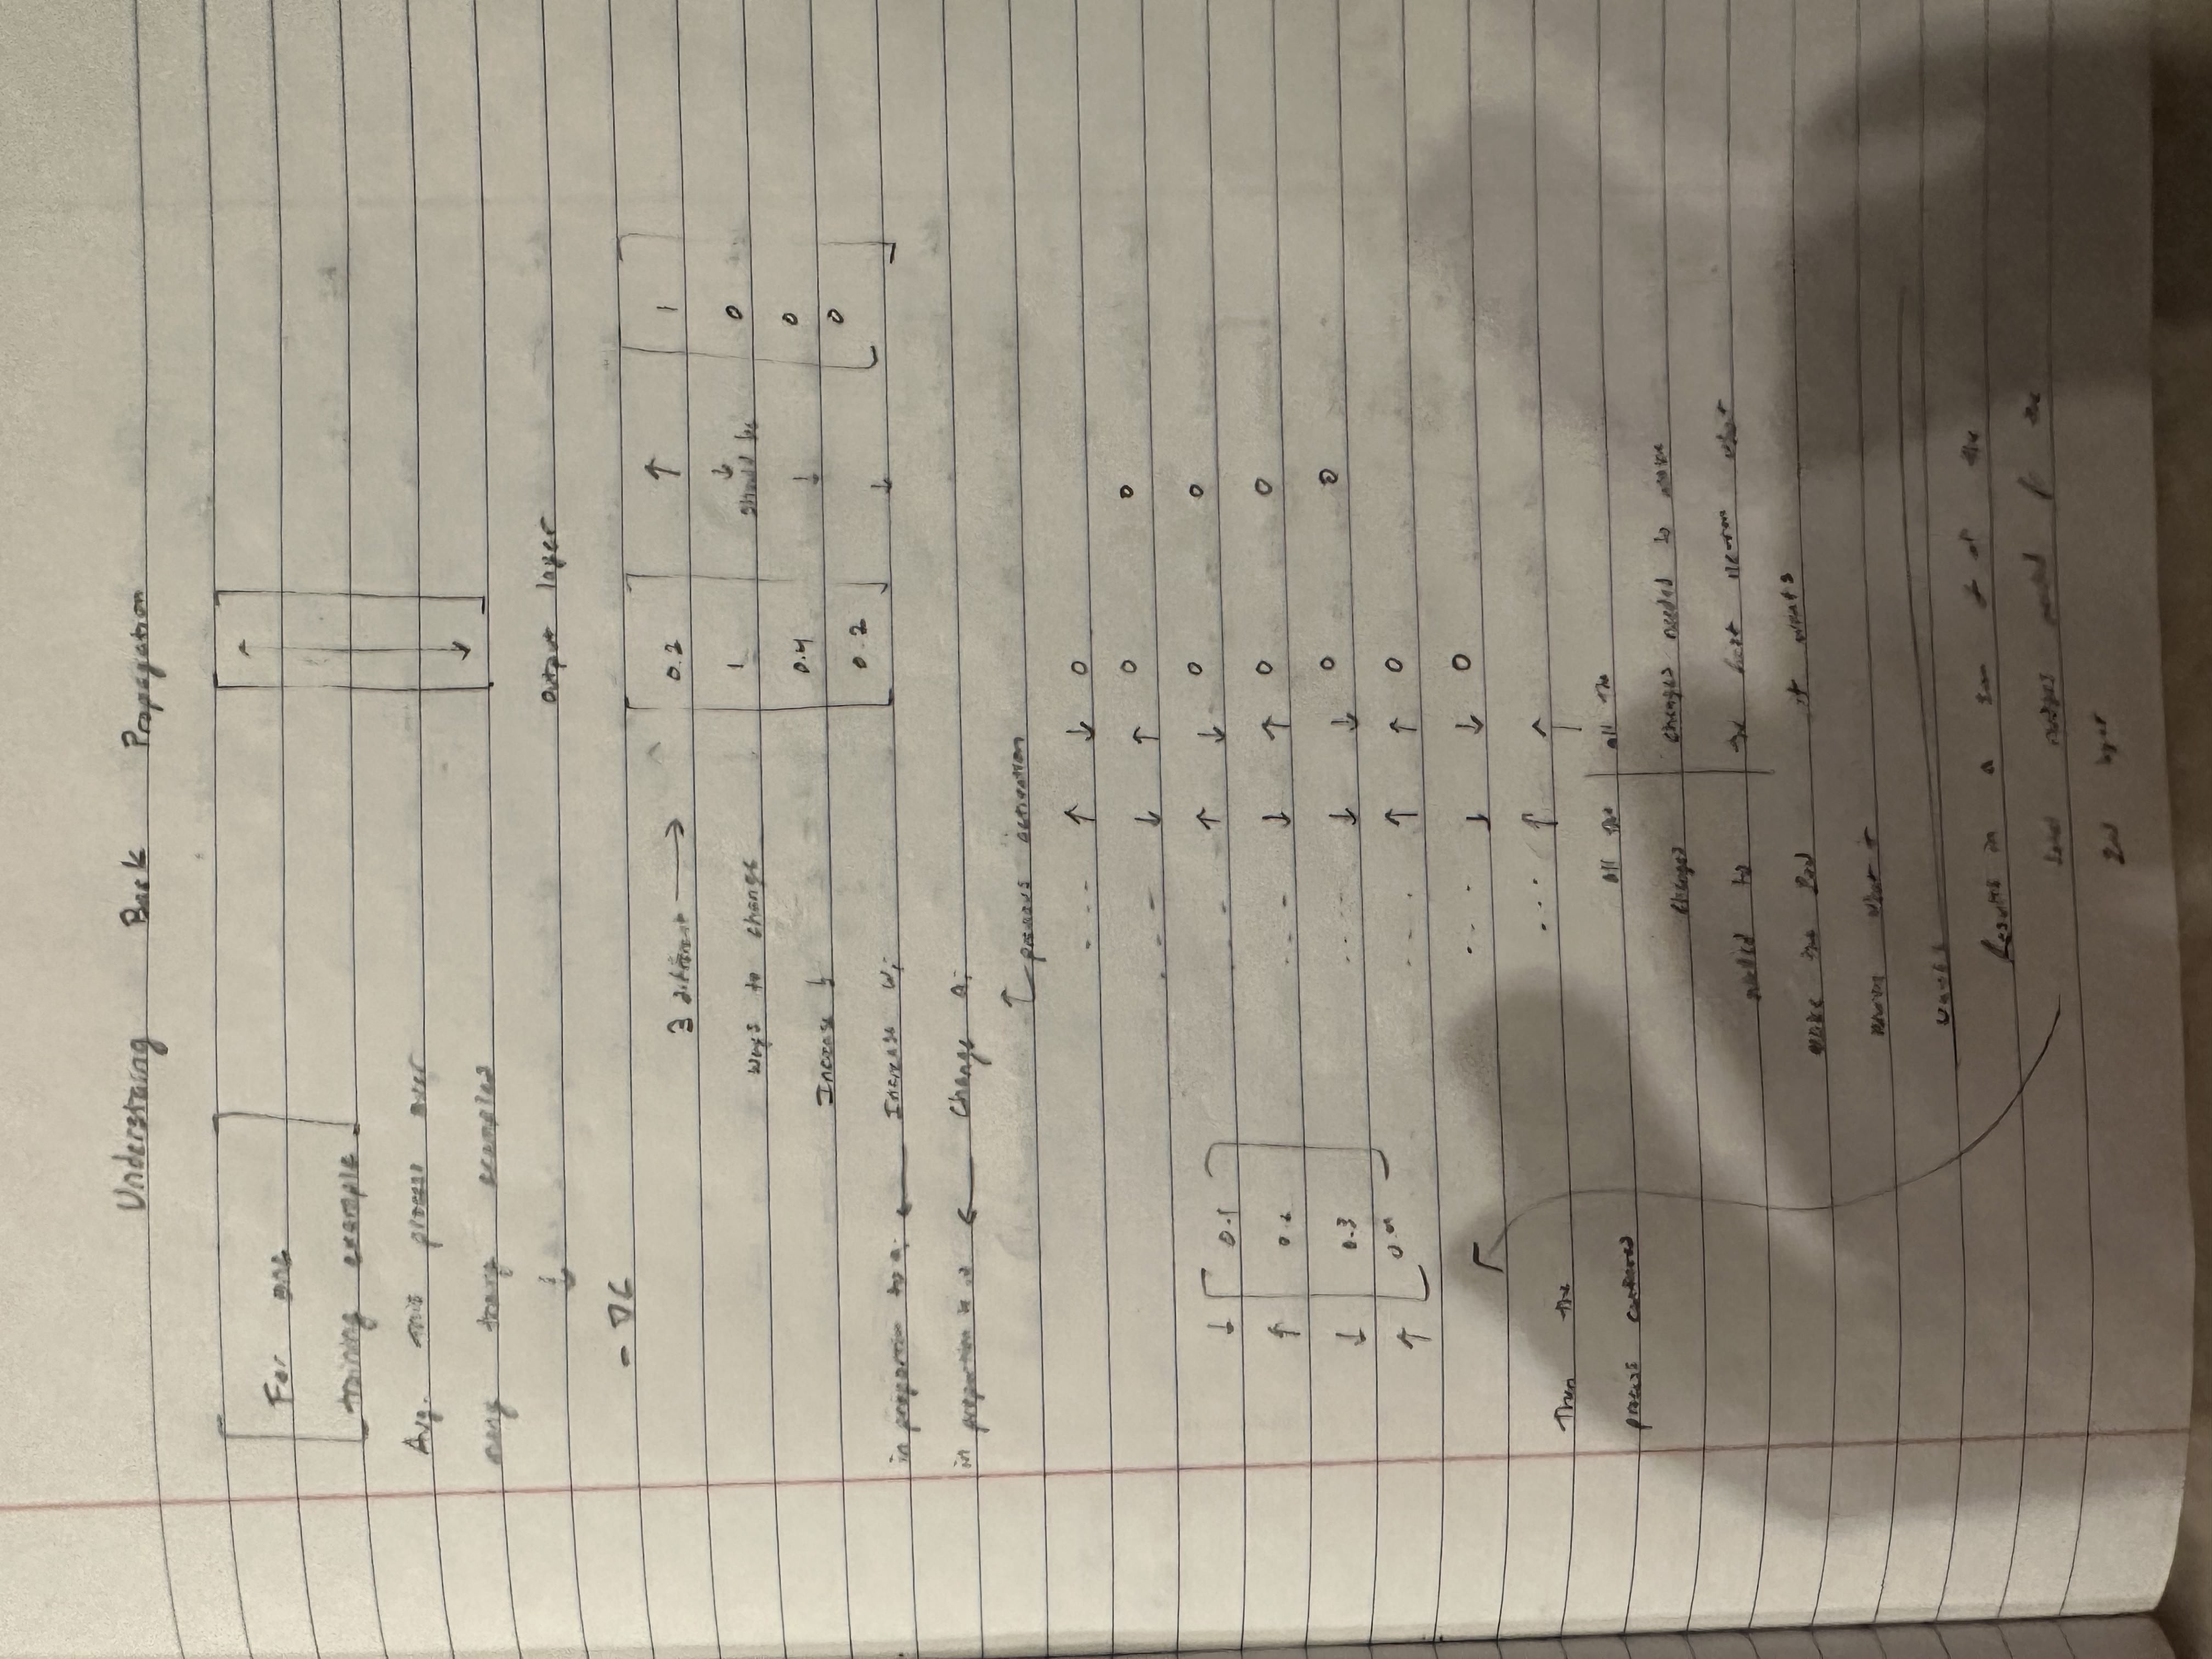 Understaing Back Propagation
For one
training example
Avg. this process over
many traing examples
↓
- ∇C
↑
↓
Output layer
3 different → 0.2 ↑ 1
ways to change 1 ↓ should be 0
Increase b 0.4 ↓ 0
0.2 ↓ 0
in proportion to ai ← Increase wi
in proportion to wi ← Change ai
↑ previous activation
--- ↑ ↓ o
--- ↓ ↑ o o
-- ↑ ↓ o o
--- ↓ ↑ o o
.... ↓ ↓ o o
.... ↑ ↑ o
... ↓ ↓ o
... ↑ ↑
↓ 0.1
↑ 0.2
↓ 0.3
↑
Then the
process continued
all the
changes
needed to
make the 2nd
neuron what it
wants
all the
changes needed to make
the first neuron what
it wants
Results in a sum of the
nudges needed for the
2nd layer